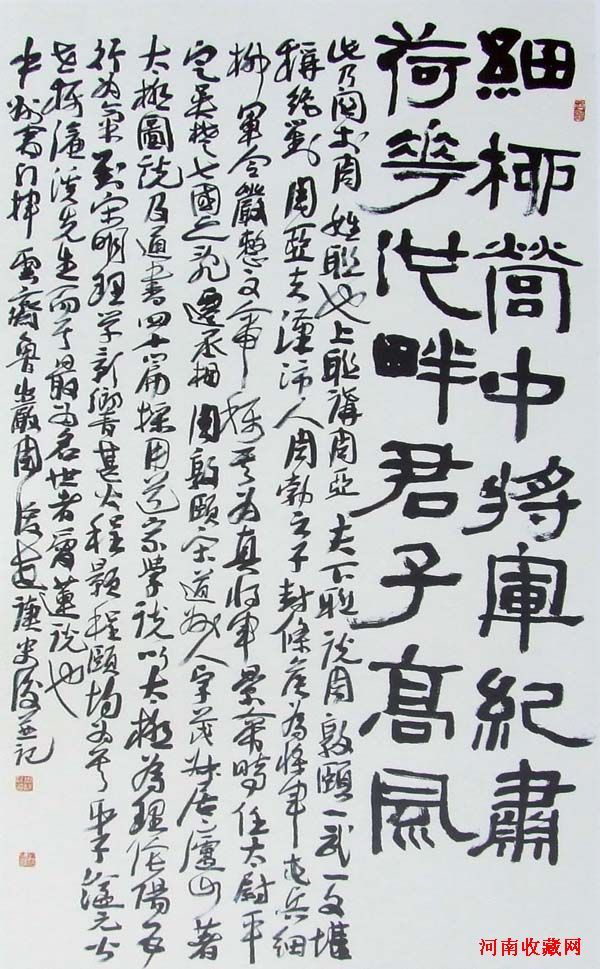 細柳營中將軍紀肅
荷華池畔君子高風
此乃周姓聯也上聯講周亞夫下聯說周敦頤一武一文堪
稱絕對周亞夫漢沛人周勃之子封條侯為將軍屯兵細
柳軍令嚴整文帝稱其為真將軍景帝時任太尉平
定吳楚七國之亂遷丞相周敦頤宋道州人字茂叔居廬山著
太極圖說及通書四十篇採用道家學說以太極為理陰陽五
行為氣對宋明理學影響甚大程顥程頤均為其弟子謚元公
世稱濂溪先生而其最為名世者愛蓮說也
中州書雲齋魯山嚴周俊謹并記
河南收藏网